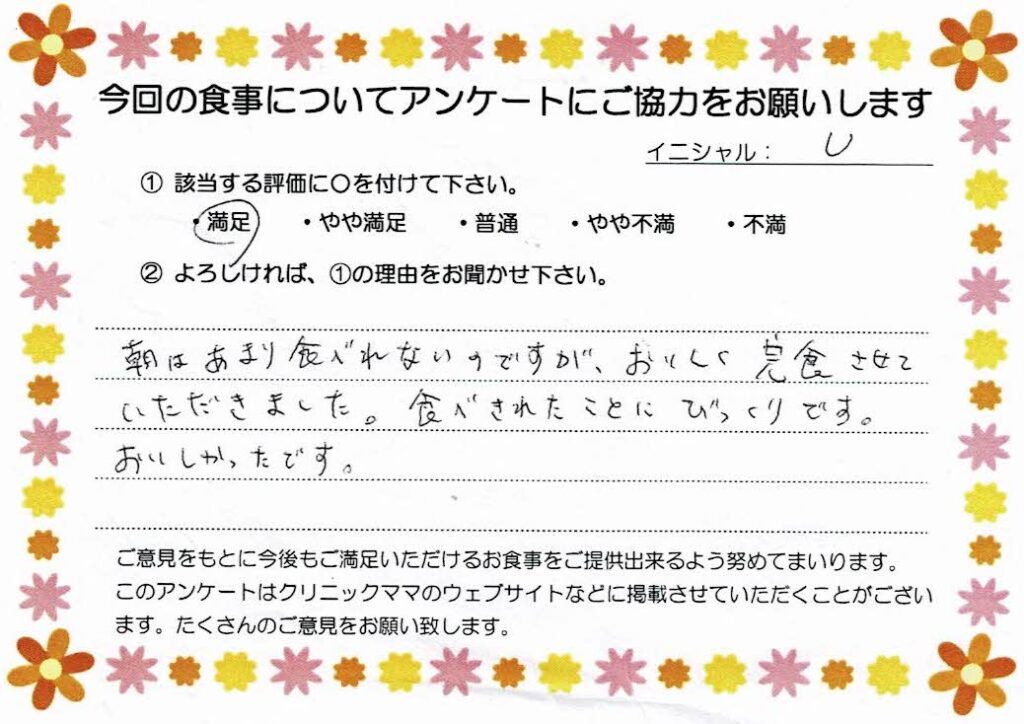 今回の食事についてアンケートにご協力をお願いします
イニシャル： U
① 該当する評価に〇を付けて下さい。
・満足 ・やや満足 ・普通 ・やや不満 ・不満
② よろしければ、①の理由をお聞かせ下さい。
朝はあまり食べれないのですが、おいしく完食させて
いただきました。食べきれたことにびっくりです。
おいしかったです。
ご意見をもとに今後もご満足いただけるお食事をご提供出来るよう努めてまいります。
このアンケートはクリニックママのウェブサイトなどに掲載させていただくことがござい
ます。たくさんのご意見をお願い致します。